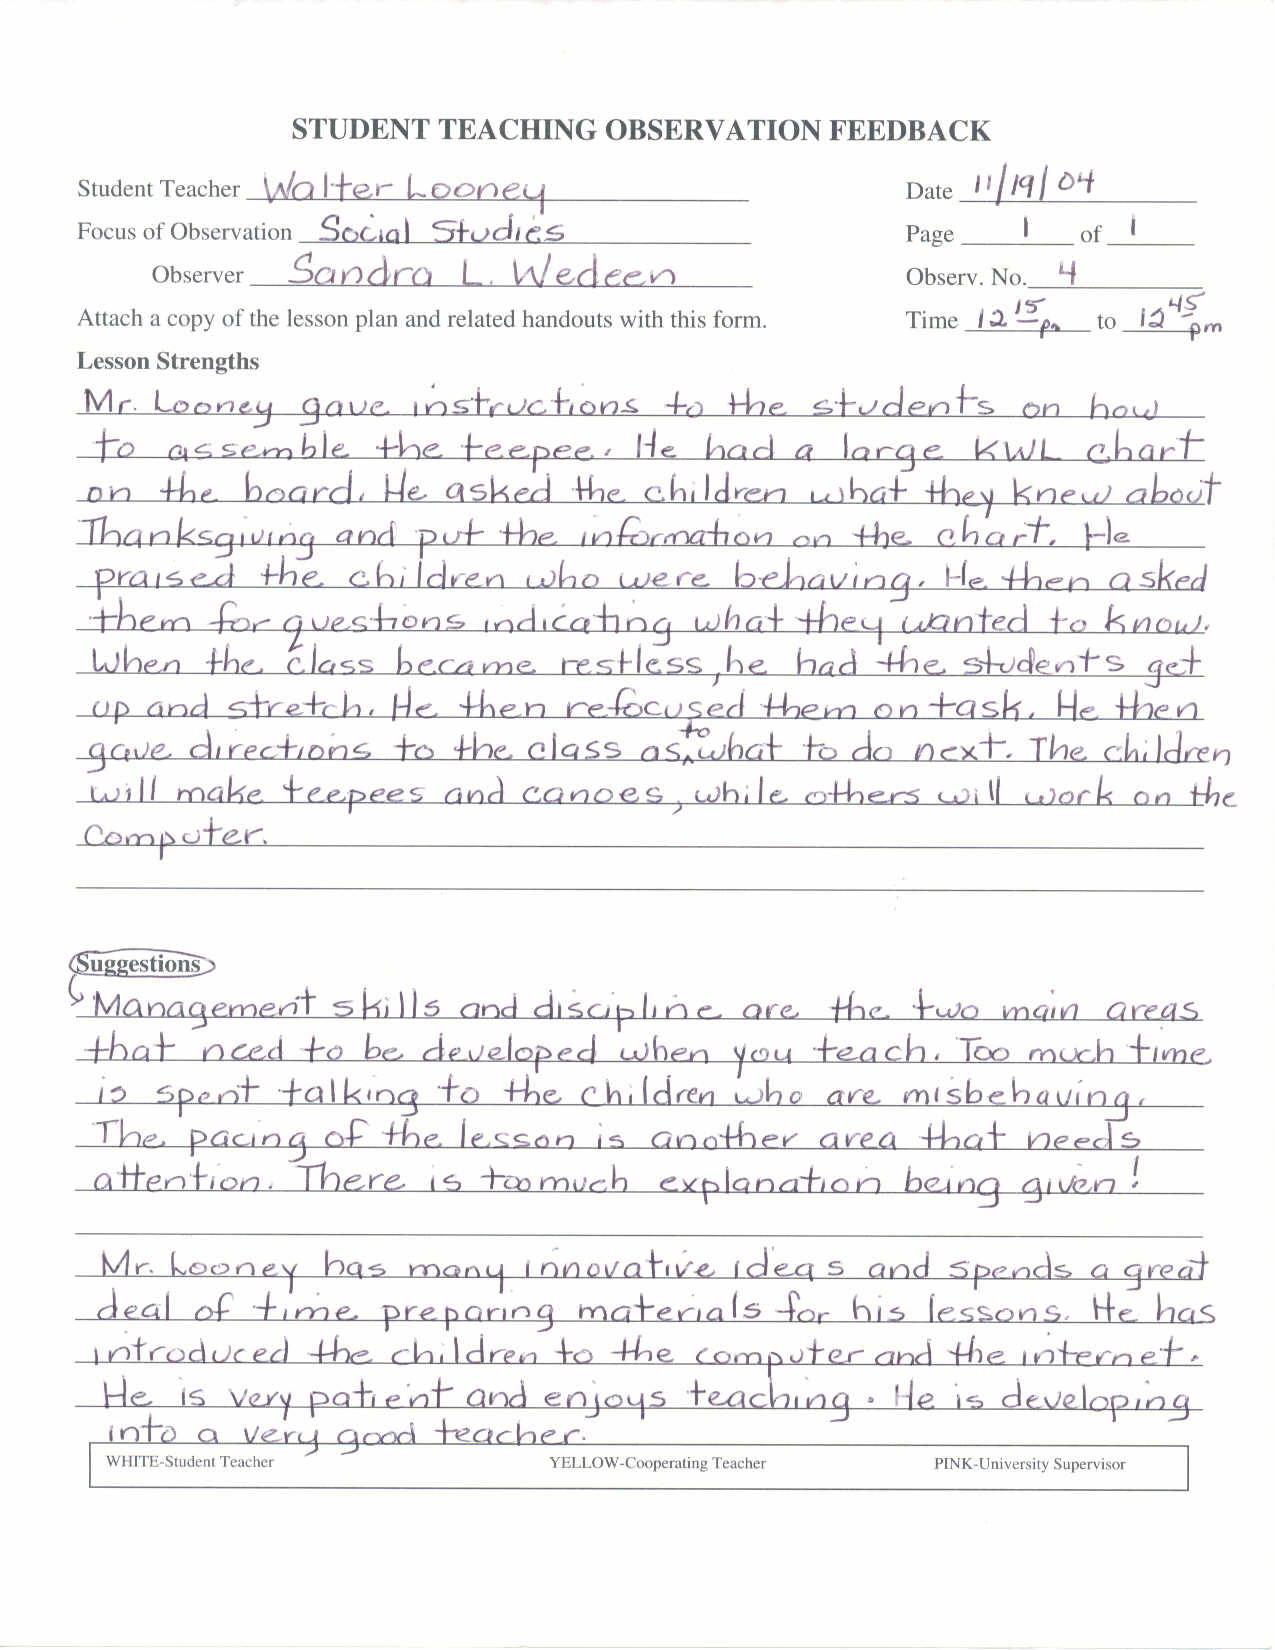 STUDENT TEACHING OBSERVATION FEEDBACK
Student Teacher Walter Looney Date 11/19/04
Focus of Observation Social Studies Page 1 of 1
Observer Sandra L. Wedeen Observ. No. 4
Attach a copy of the lesson plan and related handouts with this form. Time 12 15 pm to 12 45 pm
Lesson Strengths
Mr. Looney gave instructions to the students on how
to assemble the teepee. He had a large KWL chart
on the board. He asked the children what they knew about
Thanksgiving and put the information on the chart. He
praised the children who were behaving. He then asked
them for questions indicating what they wanted to know.
When the class became restless, he had the students get
up and stretch. He then refocused them on task. He then
gave directions to the class as to what to do next. The children
will make teepees and canoes, while others will work on the
Computer.
Suggestions
Management skills and discipline are the two main areas
that need to be developed when you teach. Too much time
is spent talking to the children who are misbehaving.
The pacing of the lesson is another area that needs
attention. There is too much explanation being given!
Mr. Looney has many innovative ideas and spends a great
deal of time preparing materials for his lessons. He has
introduced the children to the computer and the internet.
He is very patient and enjoys teaching. He is developing
into a very good teacher.
WHITE-Student Teacher YELLOW-Cooperating Teacher PINK-University Supervisor